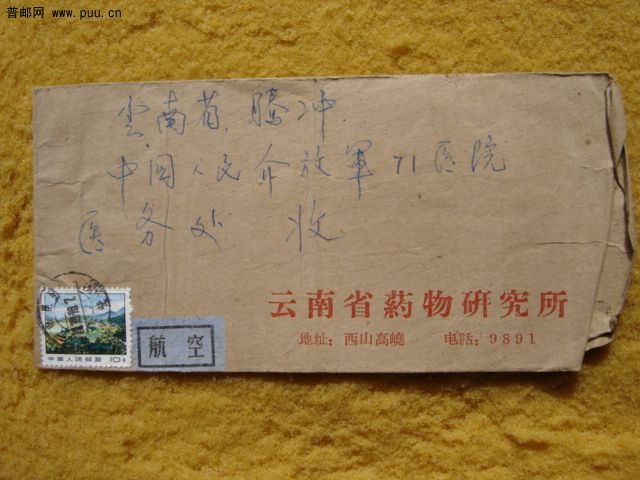 普邮网 www.puu.cn
云南省 腾冲
中国人民介放軍 71医院
医务处 收
云南省药物研究所
地址: 西山高嶢 电話: 9891
航空
中国人民邮政 10分